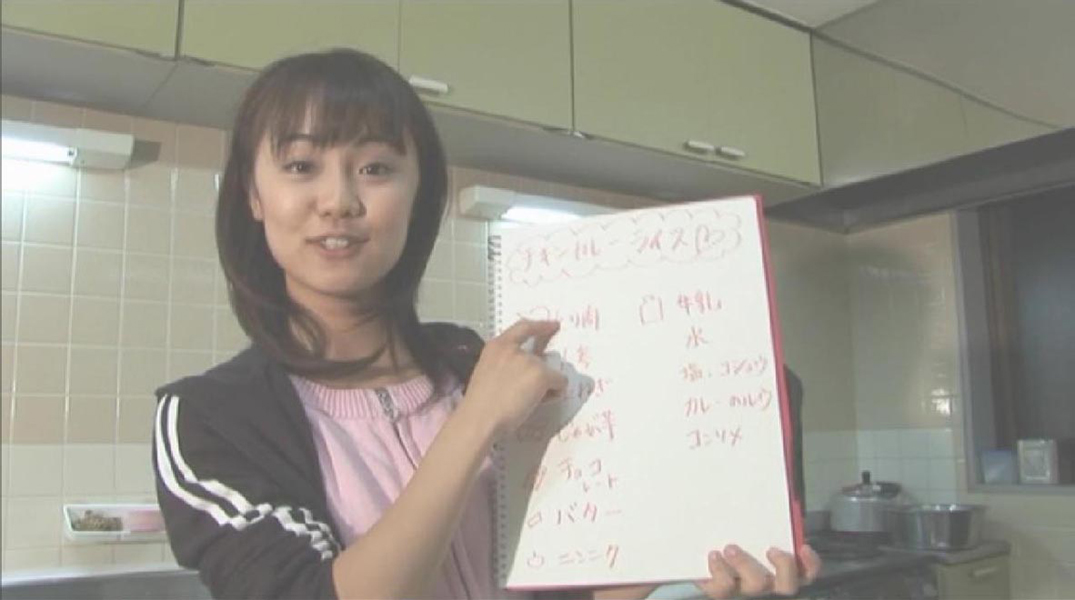 チキンカレーライス
とり肉
じゃが芋
チョコ
レート
バター
ニンニク
牛乳
水
塩、コショウ
カレーのルウ
コンソメ